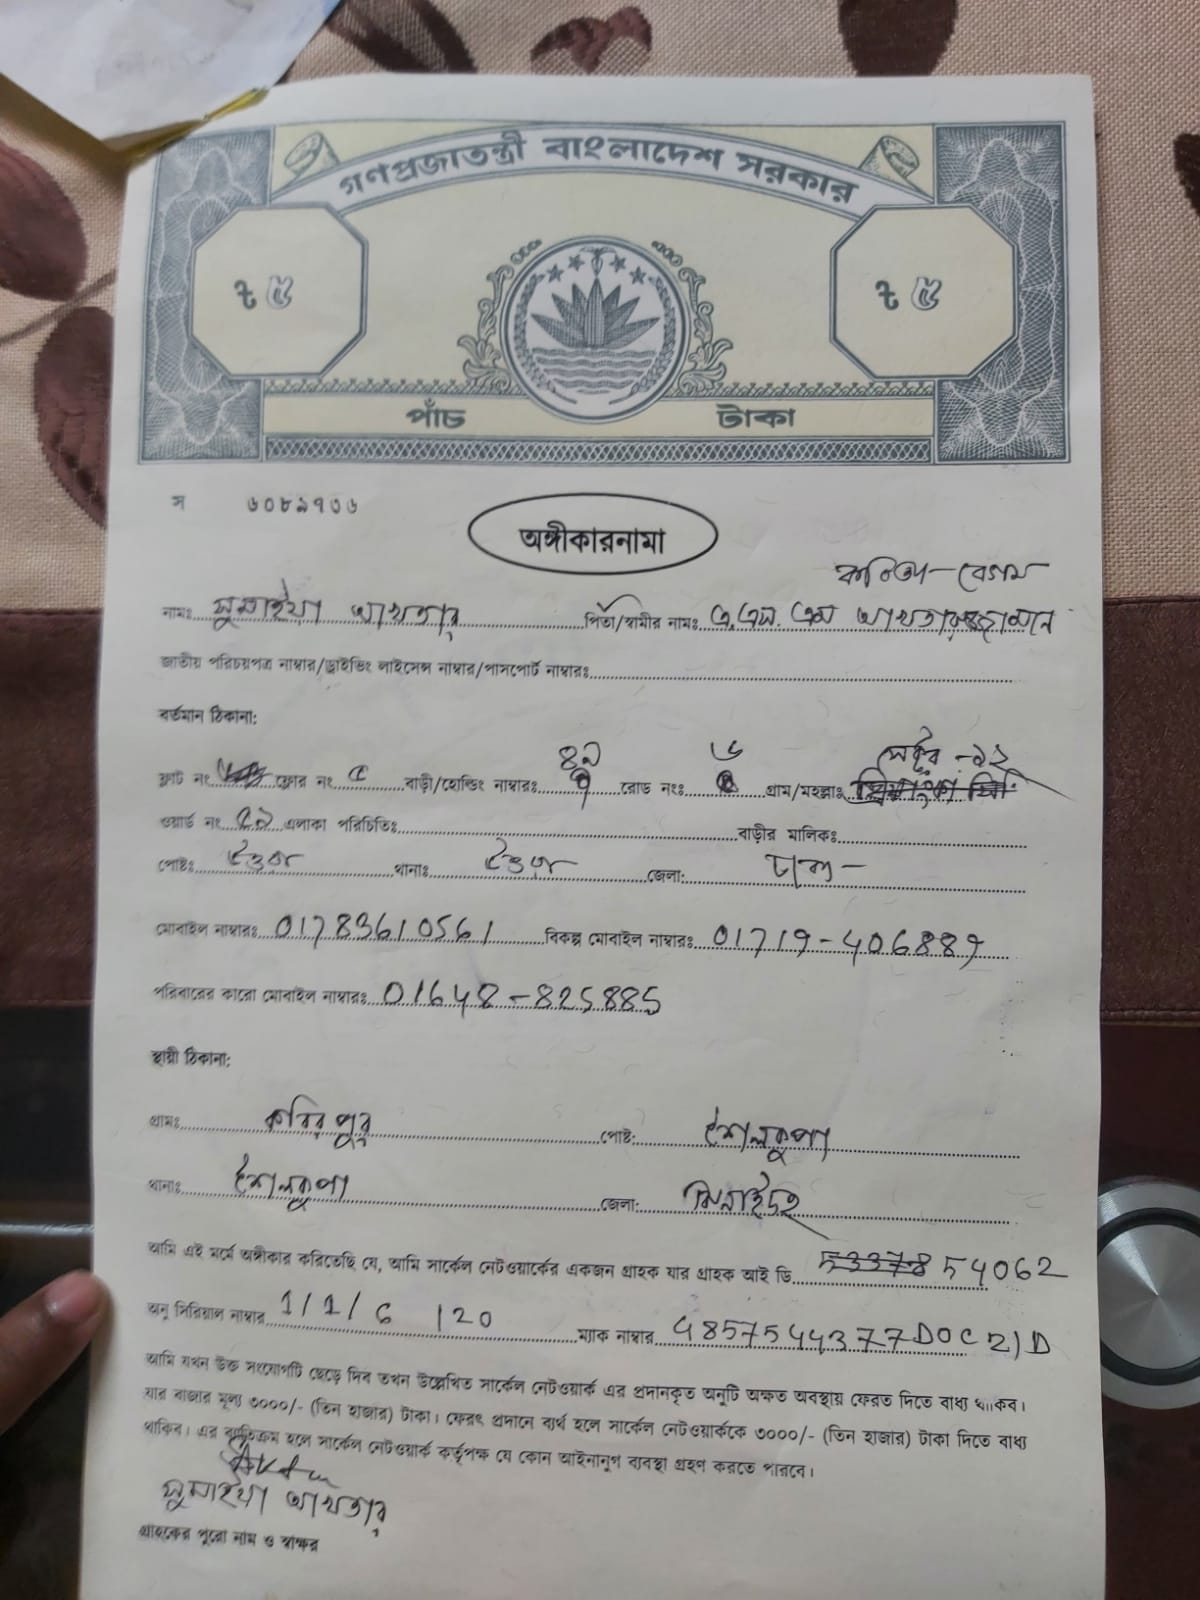 গণপ্রজাতন্ত্রী বাংলাদেশ সরকার
৳ ৫ ৳ ৫
পাঁচ টাকা
স ৬০৮৯৭৩৬
অঙ্গীকারনামা
বেগম
নামঃ সুমাইয়া আখতার পিতা/স্বামীর নামঃ এ.এস.এম আখতারুজ্জামান
জাতীয় পরিচয়পত্র নাম্বার/ড্রাইভিং লাইসেন্স নাম্বার/পাসপোর্ট নাম্বারঃ
বর্তমান ঠিকানা:
৪৯ ৬ সেক্টর -১২
ফ্লাট নং ফ্লোর নং ৫ বাড়ী/হোল্ডিং নাম্বারঃ রোড নংঃ গ্রাম/মহল্লাঃ
ওয়ার্ড নং ৫১ এলাকা পরিচিতিঃ বাড়ীর মালিকঃ
পোষ্টঃ উত্তরা থানাঃ উত্তরা জেলা: ঢাকা
মোবাইল নাম্বারঃ 01783610561 বিকল্প মোবাইল নাম্বারঃ 01719-406889
পরিবারের কারো মোবাইল নাম্বারঃ 01648-825885
স্থায়ী ঠিকানা:
গ্রামঃ কবিরপুর পোষ্ট: শৈলকুপা
থানাঃ শৈলকুপা জেলা: ঝিনাইদহ
আমি এই মর্মে অঙ্গীকার করিতেছি যে, আমি সার্কেল নেটওয়ার্কের একজন গ্রাহক যার গ্রাহক আই ডি 53378 54062
অনু সিরিয়াল নাম্বার 1/1/6 120 ম্যাক নাম্বার 4857544377D0C21D
আমি যখন উক্ত সংযোগটি ছেড়ে দিব তখন উল্লেখিত সার্কেল নেটওয়ার্ক এর প্রদানকৃত অনুটি অক্ষত অবস্থায় ফেরত দিতে বাধ্য থাকিব।
যার বাজার মূল্য ৩০০০/- (তিন হাজার) টাকা। ফেরৎ প্রদানে ব্যর্থ হলে সার্কেল নেটওয়ার্ককে ৩০০০/- (তিন হাজার) টাকা দিতে বাধ্য
থাকিব। এর ব্যতিক্রম হলে সার্কেল নেটওয়ার্ক কর্তৃপক্ষ যে কোন আইনানুগ ব্যবস্থা গ্রহণ করতে পারবে।
সুমাইয়া আখতার
গ্রাহকের পুরো নাম ও স্বাক্ষর